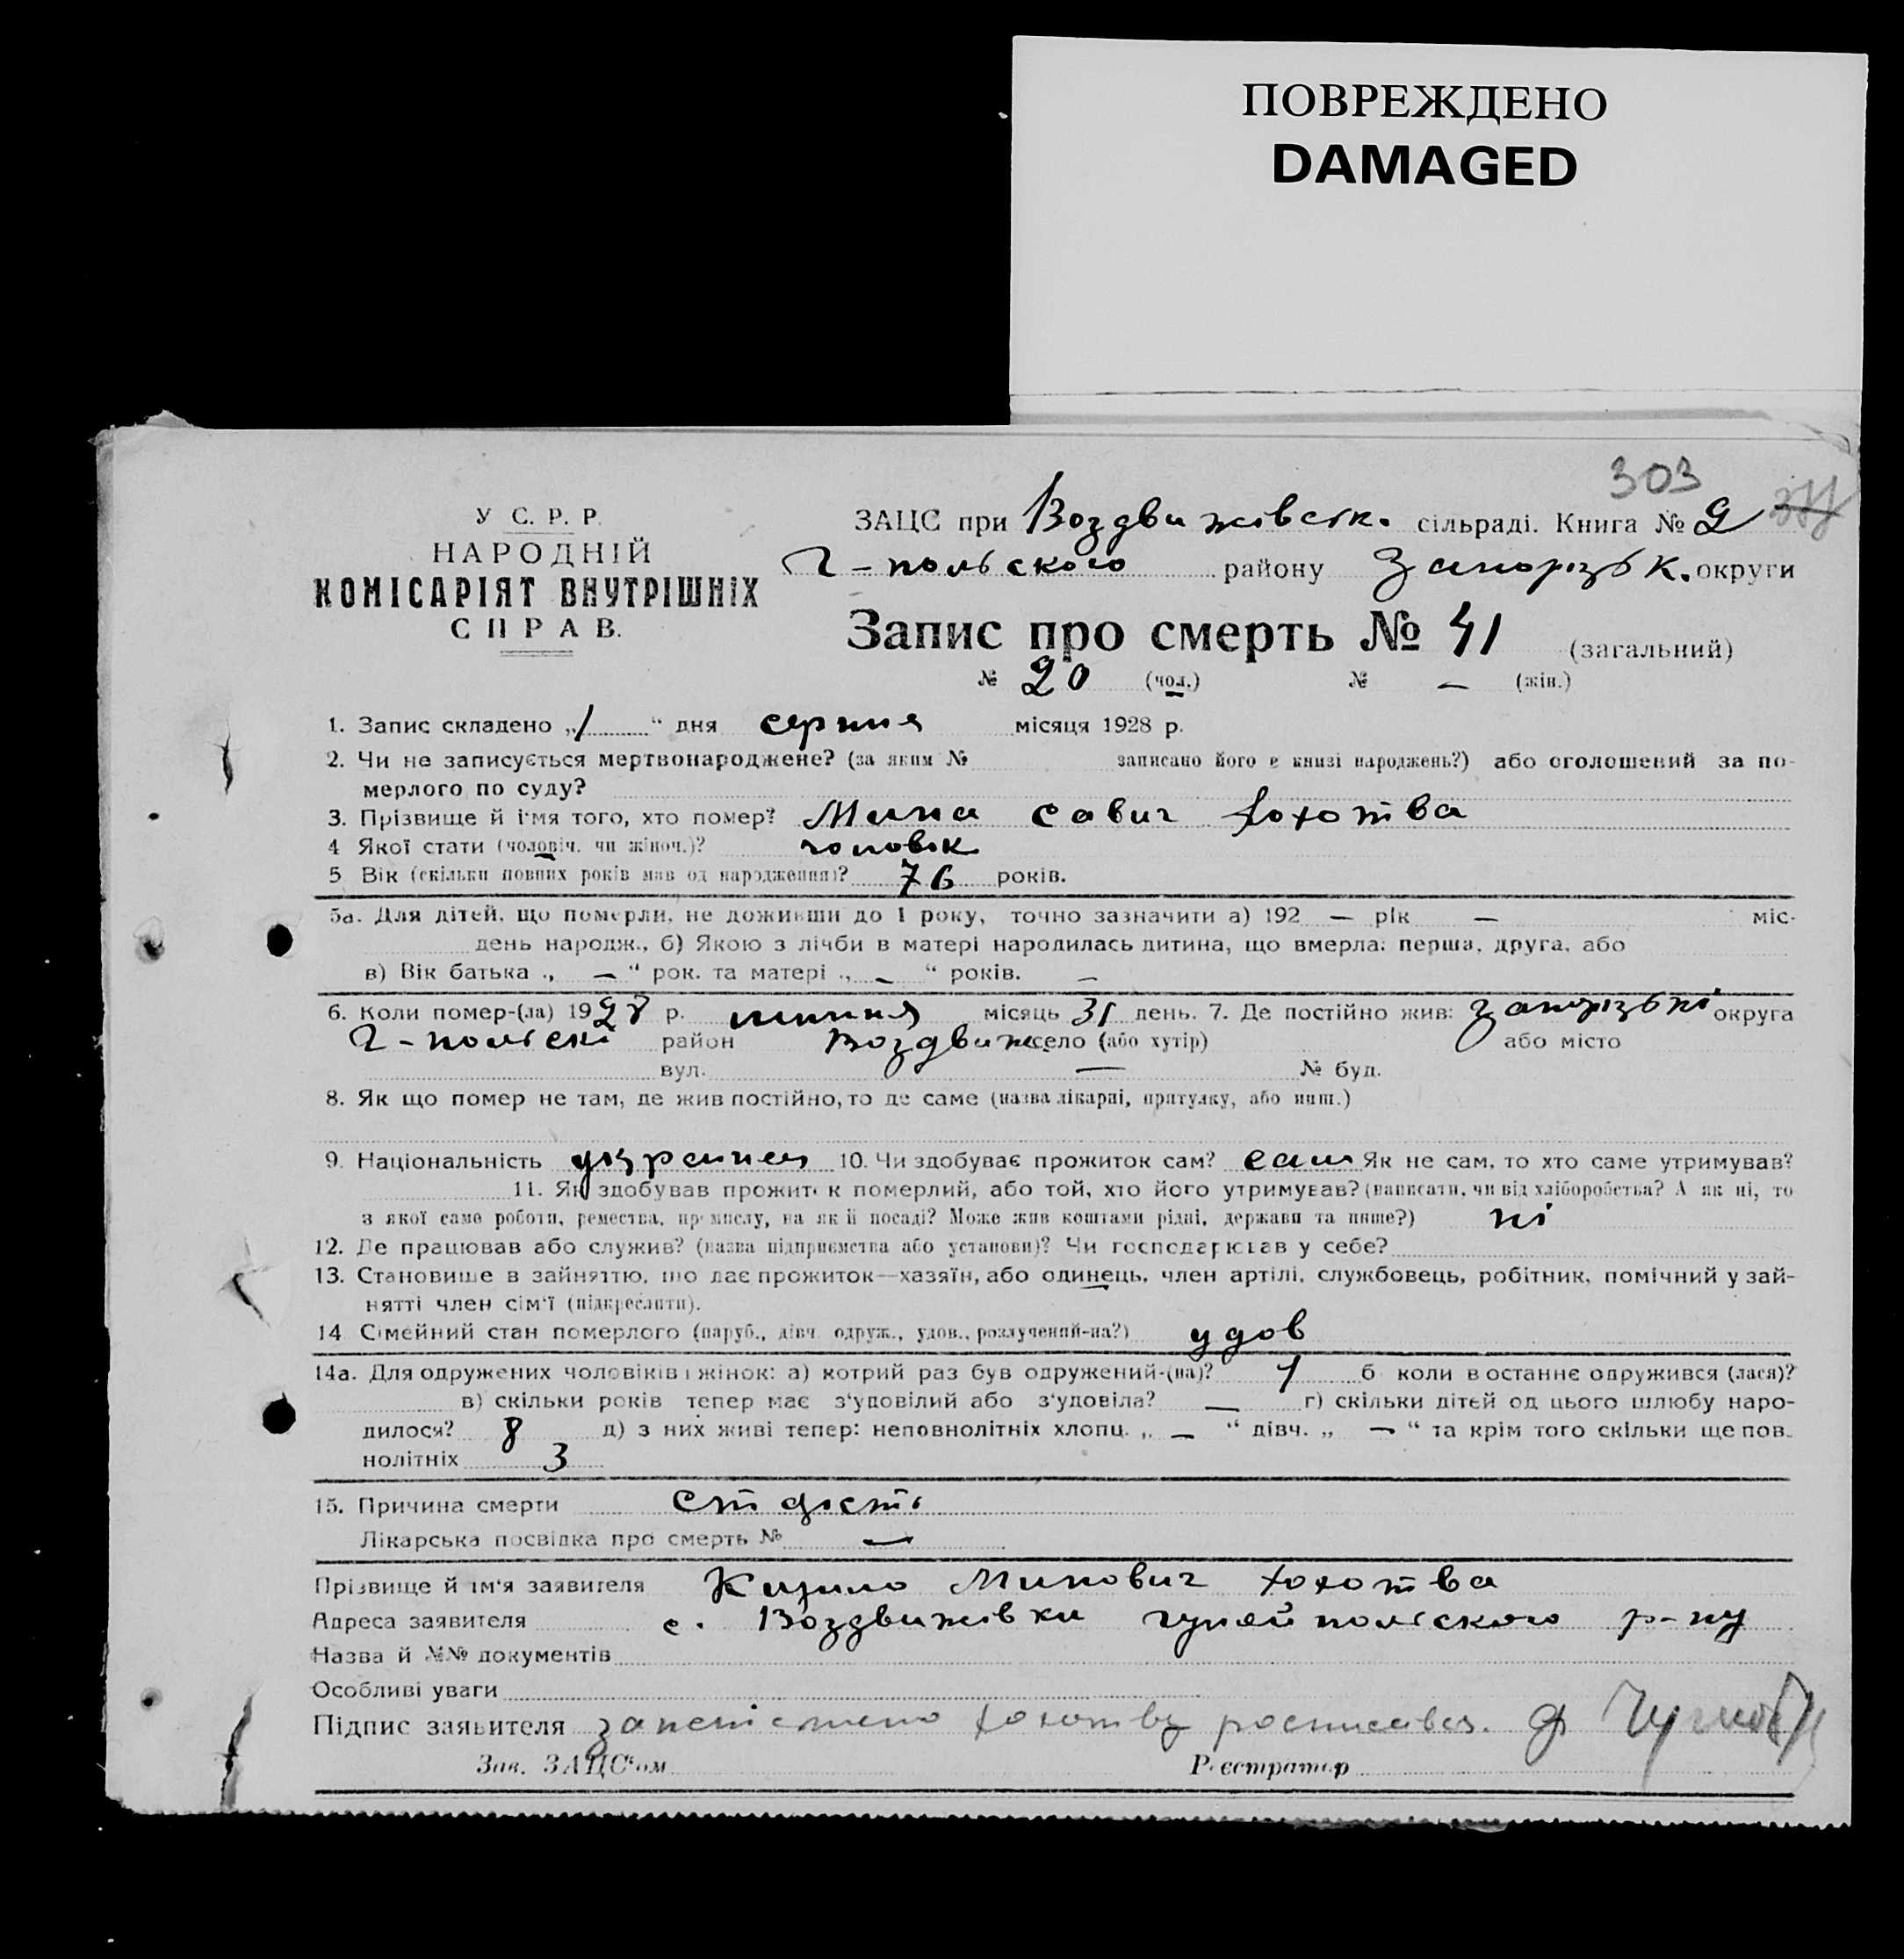 ПОВРЕЖДЕНО
DAMAGED
303
У С. Р. Р.
НАРОДНІЙ
КОМІСАРІЯТ ВНУТРІШНІХ
СПРАВ.
ЗАЦС при Воздвижівськ. сільраді. Книга № 2
Г-польского району Запорізьк. округи
Запис про смерть № 41 (загальний)
№ 20 (чол.) № — (жін.)
1. Запис складено „1“ дня серпня місяця 1928 р.
2. Чи не записується мертвонароджене? (за яким № записано його в книзі народжень?) або оголошений за по-
мерлого по суду?
3. Прізвище й ім'я того, хто помер? Мина Савич Хохотва
4 Якої стати (чоловіч. чи жіноч.)? чоловік
5 Вік (скільки повних років мав од народження)? 76 років.
5а. Для дітей, що померли, не доживши до 1 року, точно зазначити а) 192 — рік — міс-
день народж., б) Якою з лічби в матері народилась дитина, що вмерла: перша, друга, або
в) Вік батька „ — “ рок. та матері „ — “ років. —
6. Коли помер-(ла) 1928 р. липня місяць 31 день. 7. Де постійно жив: Запорізькі округа
Г-польскі район Воздвиж село (або хутір) або місто
вул. — № буд.
8. Як що помер не там, де жив постійно, то де саме (назва лікарні, притулку, або инш.)
9. Національність україней 10. Чи здобуває прожиток сам? сам Як не сам, то хто саме утримував?
11. Як здобував прожиток померлий, або той, хто його утримував? (написати, чи від хліборобства? А як ні, то
з якої саме роботи, ремества, промислу, на якій посаді? Може жив коштами рідні, держави та инше?) ні
12. Де працював або служив? (назва підприємства або установи)? Чи господарював у себе?
13. Становище в зайняттю, що дає прожиток—хазяїн, або одинець, член артілі, службовець, робітник, помічний у зай-
нятті член сім'ї (підкреслити).
14 Сімейний стан померлого (паруб., дівч. одруж., удов., розлучений-на?) удов
14а. Для одружених чоловіків і жінок: а) котрий раз був одружений-(на)? 1 б коли в останнє одружився (лася)?
в) скільки років тепер має з'удовілий або з'удовіла? — г) скільки дітей од цього шлюбу наро-
дилося? 8 д) з них живі тепер: неповнолітніх хлопц. „ — “ дівч. „ — “ та крім того скільки ще пов-
нолітніх 3
15. Причина смерти старість
Лікарська посвідка про смерть № —
Прізвище й ім'я заявителя Кирило Минович Хохотва
Адреса заявителя с. Воздвижівки гуляйпольского р-ну
Назва й №№ документів
Особливі уваги
Підпис заявителя Хохотву росписався.
Зав. ЗАЦС'ом Реєстратор